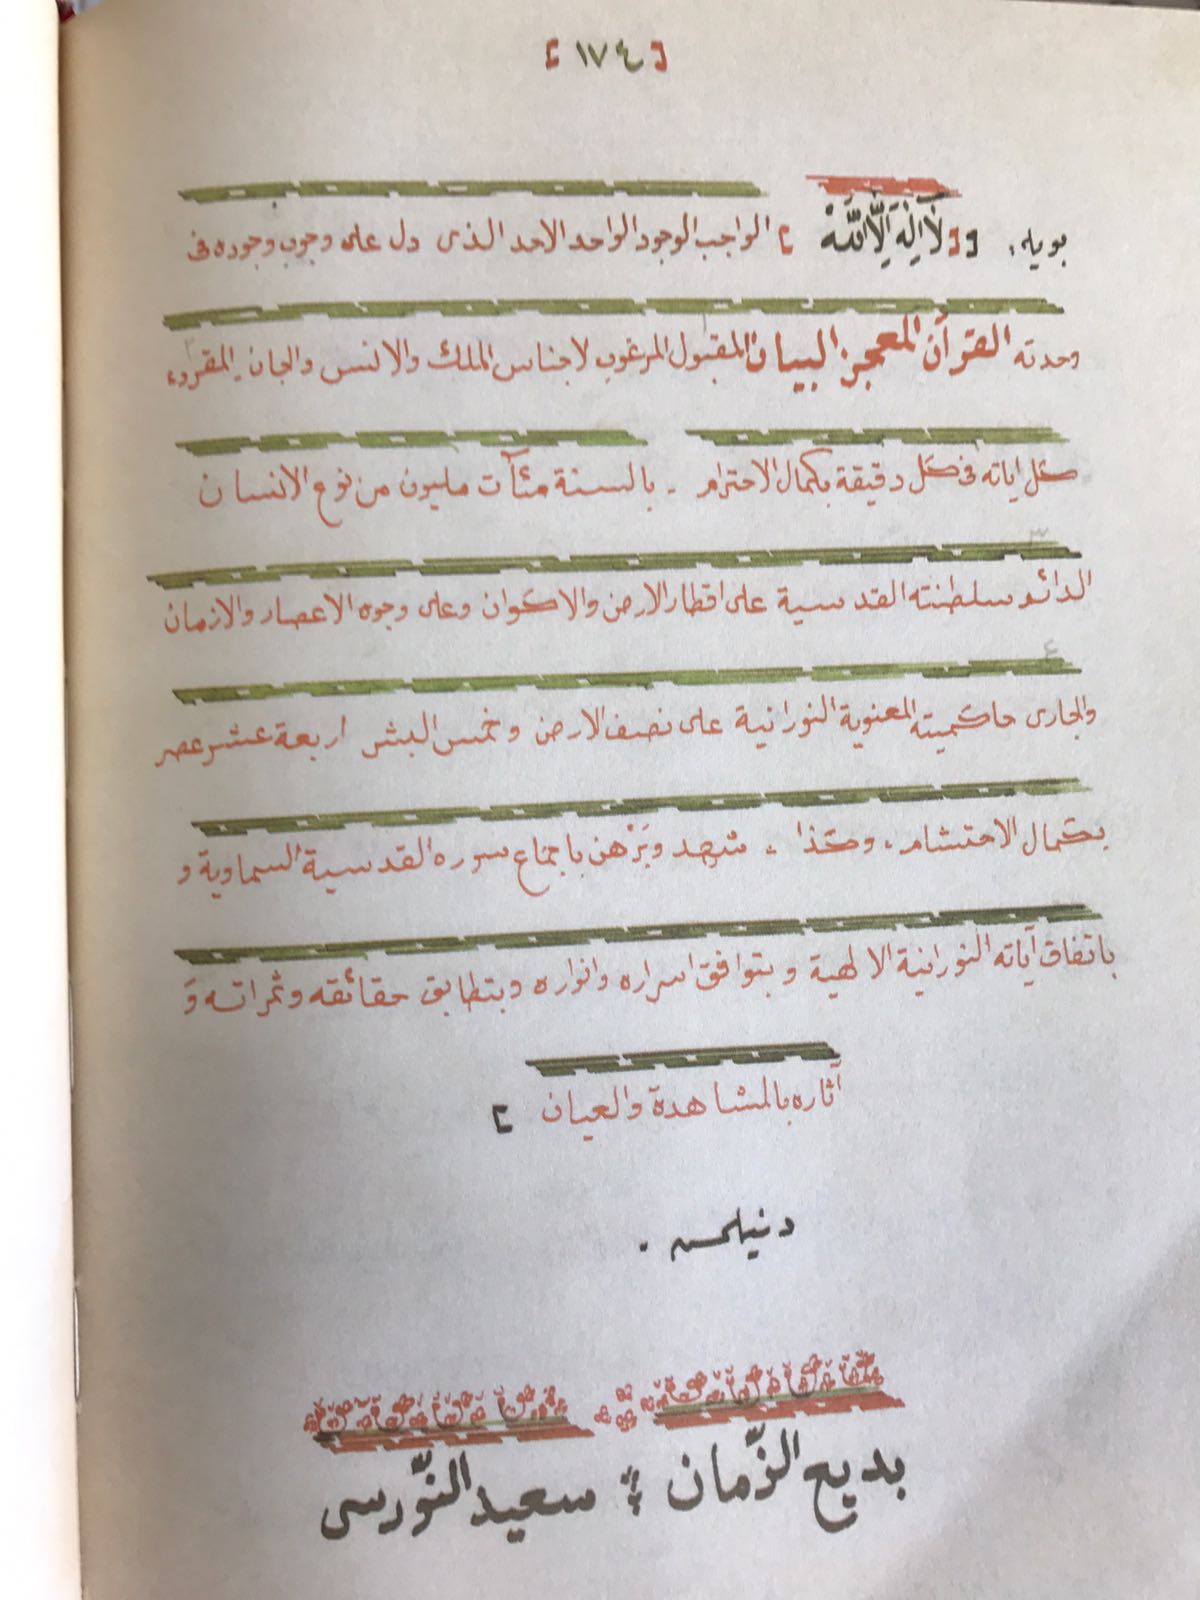 [ ١٧٤ ]
بويله، [[ لَٓا اِلٰهَ اِلَّا اللّٰهُ ] الواجب الوجود الواحد الاحد الذى دل على وجوب وجوده فى
وحدته القرآن المعجز البيان المقبول المرغوب لاجناس الملك والانس والجان . المقروء
كل اياته فى كل دقيقة بكمال الاحترام . بالسنة مئآت مليون من نوع الانسان
الدائم سلطنته القدسية على اقطار الارض والاكوان وعلى وجوه الاعصار والازمان
والجارى حاكميته المعنوية النورانية على نصف الارض وخمس البشر اربعة عشر عصر
بكمال الاحتشام . وكذا . شهد وبَرْهن باجماع سوره القدسية السماوية و
باتفاق آياته النورانية الالهية و بتوافق اسراره وانواره وبتطابق حقائقه وثمراته وَ
آثاره بالمشاهدة والعيان ]
دنيلمش .
بديع الزّمان سعيد النّورسى